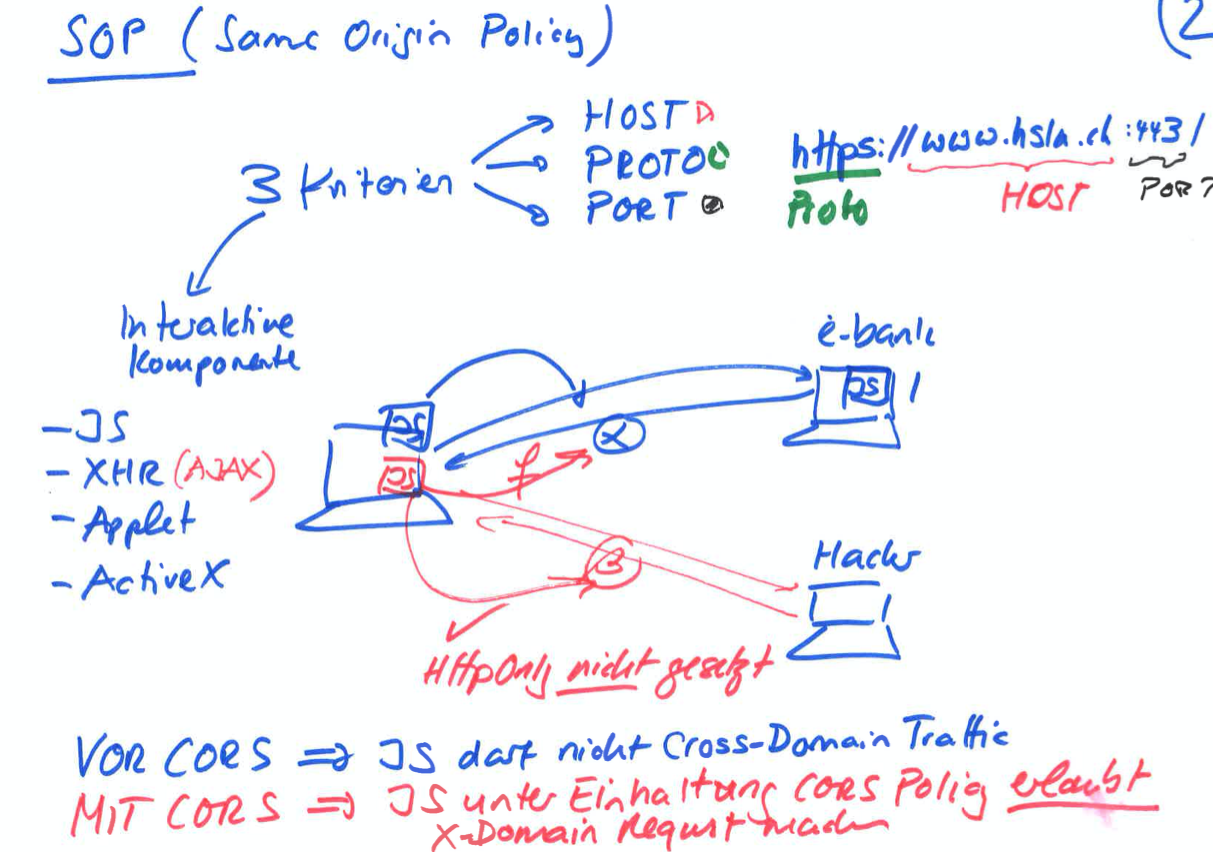 SOP (Same Origin Policy)
(2
HOST
3 Kriterien
PROTO
https://www.hsla.ch:443/
PORT
Proto
HOST
PORT
Interaktive
Komponente
e-bank
JS
- JS
JS
- XHR (AJAX)
JS
X
- Applet
- ActiveX
3
Hacker
HttpOnly nicht gesetzt
VOR CORS => JS darf nicht Cross-Domain Traffic
MIT CORS => JS unter Einhaltung CORS Policy erlaubt
X-Domain Request machen